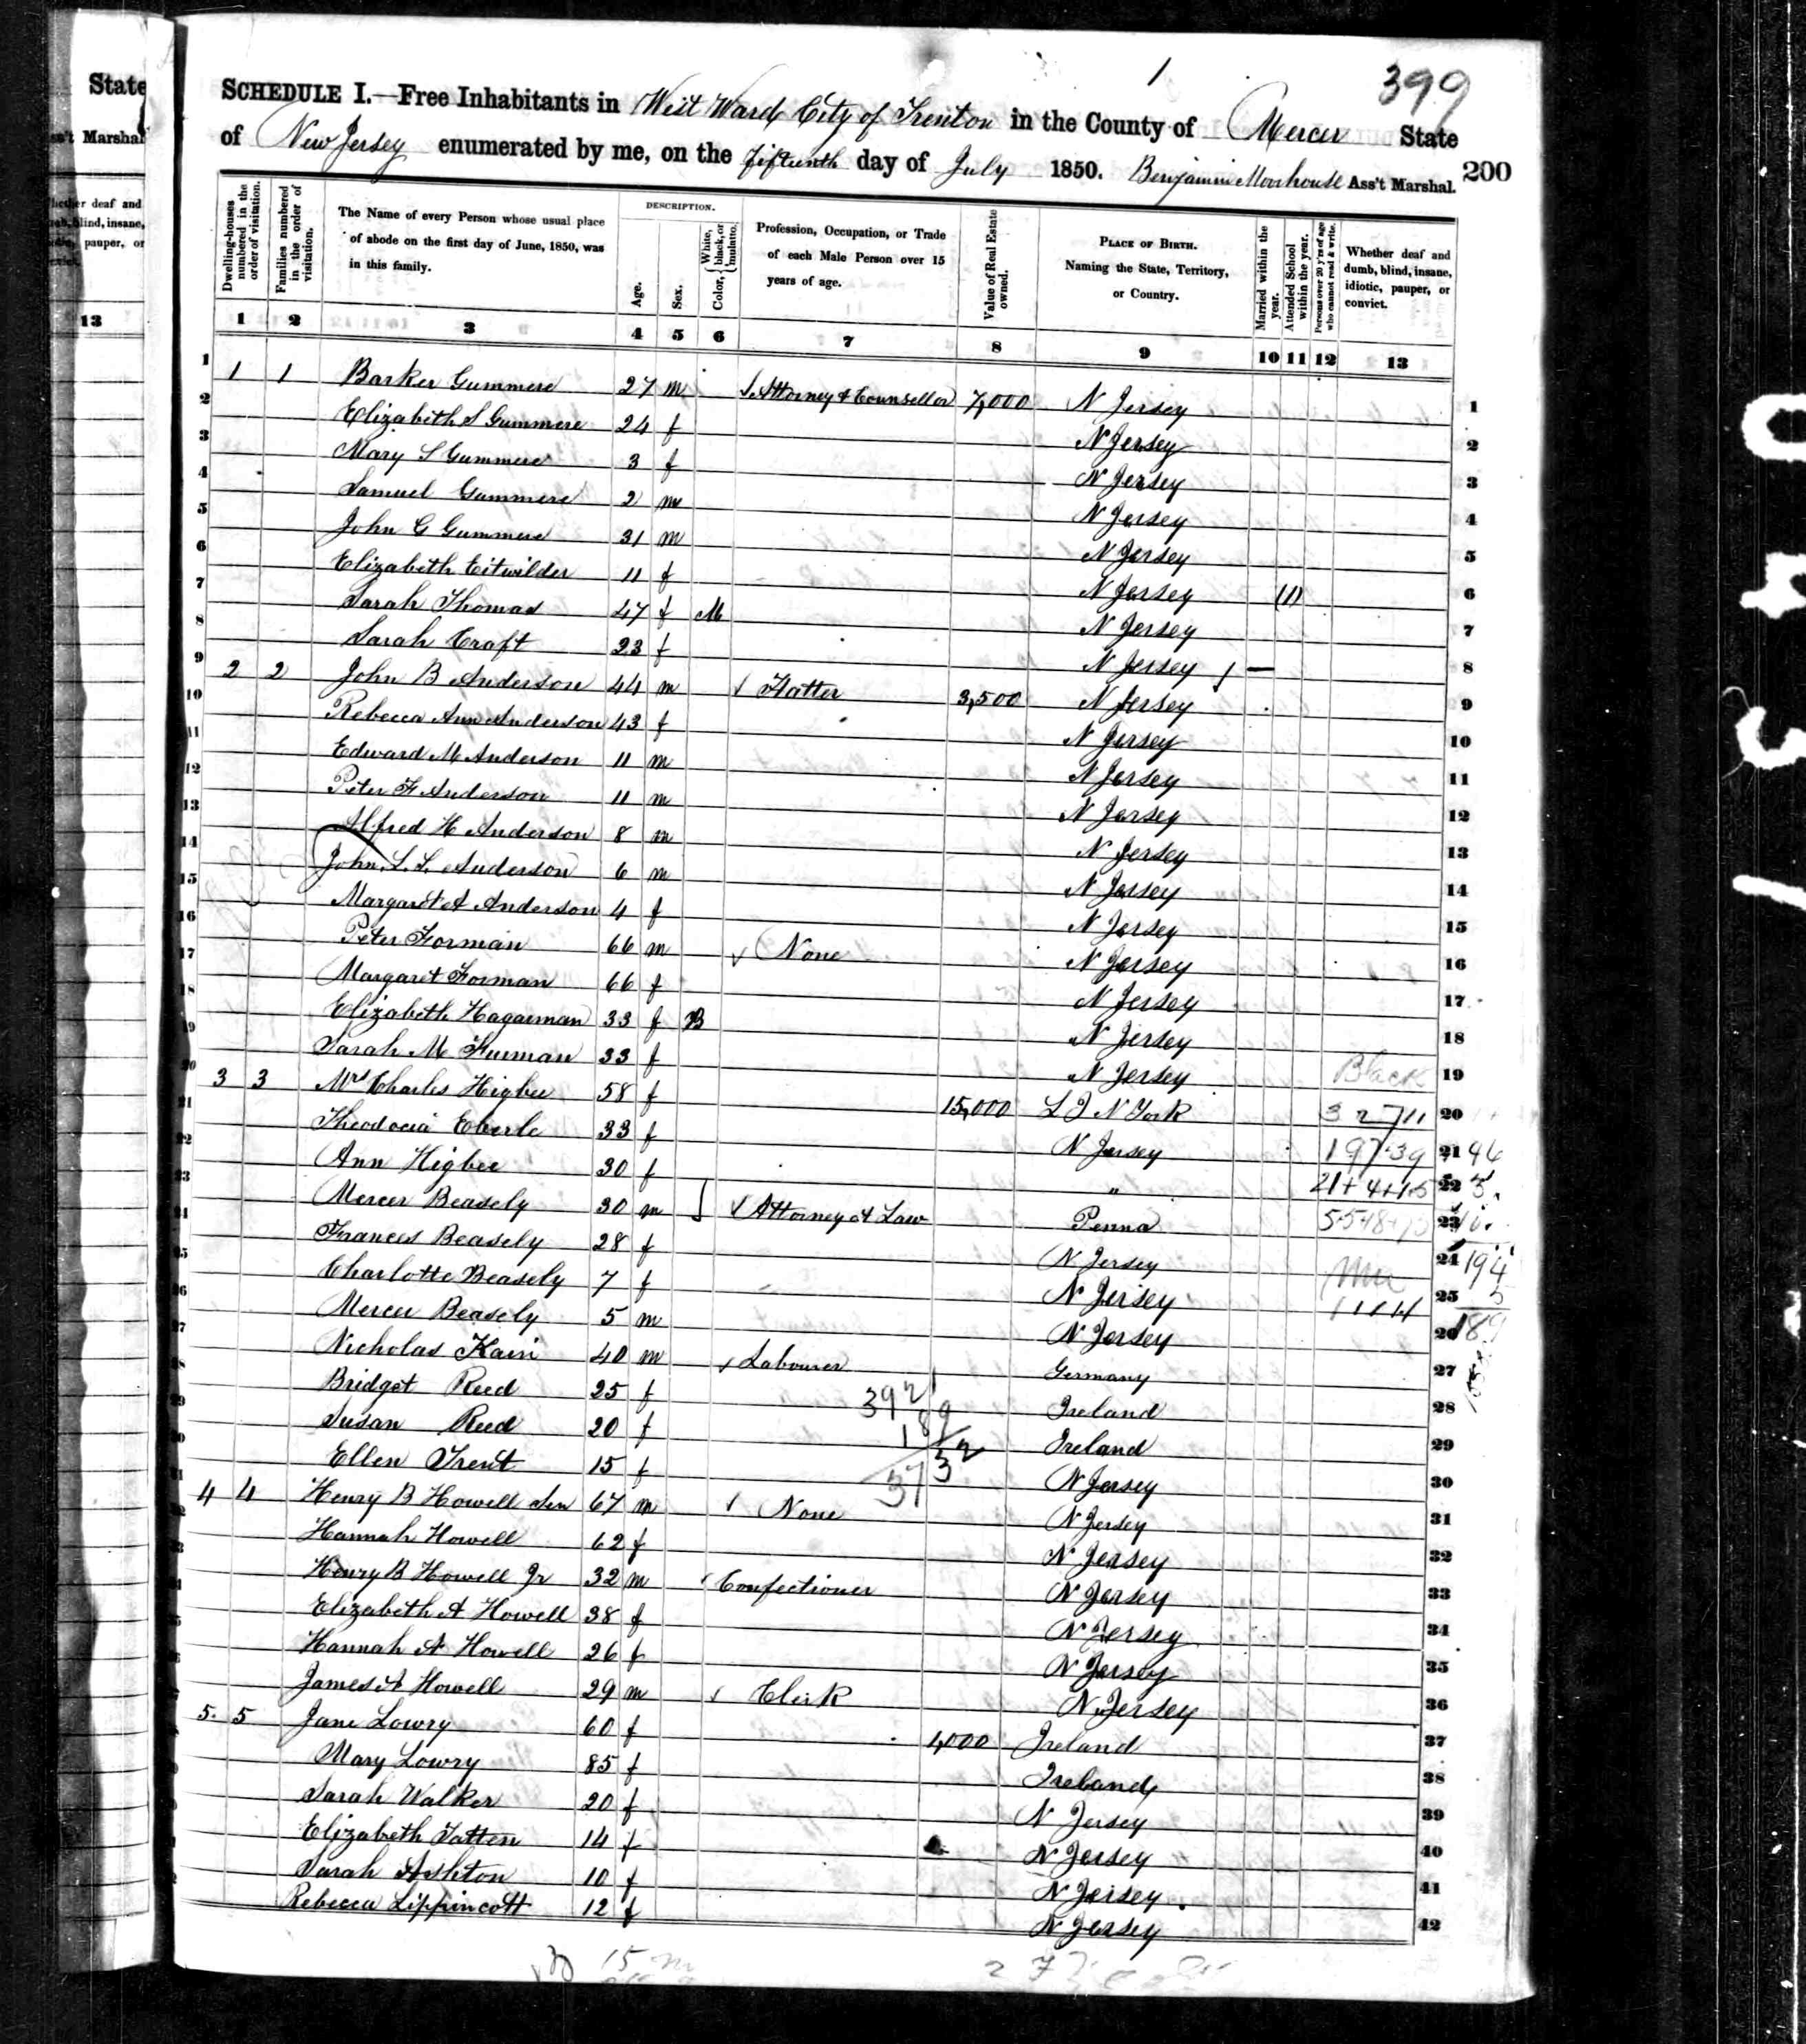 1
399
SCHEDULE I.—Free Inhabitants in West Ward City of Trenton in the County of Mercer State
of New Jersey enumerated by me, on the fifteenth day of July 1850. Benjamin Moorhouse Ass't Marshal. 200
State
Ass't Marshal
13
Dwelling-houses numbered in the order of visitation.
Families numbered in the order of visitation.
The Name of every Person whose usual place of abode on the first day of June, 1850, was in this family.
DESCRIPTION.
Age.
Sex.
Color, { White, black, or mulatto.
Profession, Occupation, or Trade of each Male Person over 15 years of age.
Value of Real Estate owned.
PLACE OF BIRTH. Naming the State, Territory, or Country.
Married within the year.
Attended School within the year.
Persons over 20 y'rs of age who cannot read & write.
Whether deaf and dumb, blind, insane, idiotic, pauper, or convict.
1 2 3 4 5 6 7 8 9 10 11 12 13
1 1 1 Barker Gummere 27 m Attorney & Counsellor 7,000 N Jersey 1
2 Elizabeth S Gummere 24 f N Jersey 2
3 Mary S Gummere 3 f N Jersey 3
4 Samuel Gummere 2 m N Jersey 4
5 John G Gummere 31 m N Jersey 5
6 Elizabeth 11 f N Jersey (1) 6
7 Sarah Thomas 47 f M N Jersey 7
8 Sarah Croft 23 f N Jersey 8
9 2 2 John B Anderson 44 m Hatter 3,500 N Jersey 9
10 Rebecca Ann Anderson 43 f N Jersey 10
11 Edward M Anderson 11 m N Jersey 11
12 Peter F Anderson 11 m N Jersey 12
13 Alfred H Anderson 8 m N Jersey 13
14 John L. L. Anderson 6 m N Jersey 14
15 Margaret A Anderson 4 f N Jersey 15
16 Peter Forman 66 m None N Jersey 16
17 Margaret Forman 66 f N Jersey 17
18 Elizabeth Hagaman 33 f B N Jersey 18
19 Sarah M Furman 33 f N Jersey Black 19
20 3 3 Mrs Charles Higbee 58 f 15,000 L I N York 20
21 Theodocia Eberle 33 f N Jersey 21
22 Ann Higbee 30 f " 22
23 Mercer Beasely 30 m Attorney at Law Penna 23
Frances Beasely 28 f N Jersey 24 194
25 Charlotte Beasely 7 f N Jersey 25 5
26 Mercer Beasely 5 m N Jersey 26 189
27 Nicholas Kain 40 m Labourer Germany 27
28 Bridget Reed 25 f 392 Ireland 28
29 Susan Reed 20 f 189 Ireland 29
Ellen Trent 15 f N Jersey 30
4 4 Henry B Howell Sen 67 m None N Jersey 31
Hannah Howell 62 f N Jersey 32
Henry B Howell Jr 32 m Confectioner N Jersey 33
Elizabeth A Howell 38 f N Jersey 34
Hannah A Howell 26 f N Jersey 35
James A Howell 29 m Clerk N. Jersey 36
5. 5 Jane Lowry 60 f 1,000 Ireland 37
Mary Lowry 85 f Ireland 38
Sarah Walker 20 f N Jersey 39
Elizabeth Tatten 14 f N Jersey 40
Sarah Ashton 10 f N Jersey 41
Rebecca Lippincott 12 f N Jersey 42